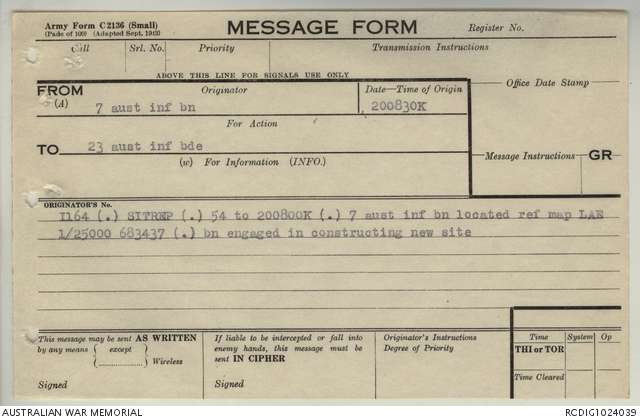 Army Form C 2136 (Small)
(Pads of 100) (Adapted Sept. 1942)
MESSAGE FORM
Register No.
Call Srl. No. Priority Transmission Instructions
ABOVE THIS LINE FOR SIGNALS USE ONLY
FROM Originator Date—Time of Origin Office Date Stamp
(A) 7 aust inf bn 200830K
For Action
TO 23 aust inf bde
(w) For Information (INFO.) Message Instructions GR
ORIGINATOR'S No.
I164 (.) SITREP (.) 54 to 200800K (.) 7 aust inf bn located ref map LAE
1/25000 683437 (.) bn engaged in constructing new site
This message may be sent AS WRITTEN
by any means { except } Wireless
Signed
If liable to be intercepted or fall into
enemy hands, this message must be
sent IN CIPHER
Signed
Originator's Instructions
Degree of Priority
Time System Op
THI or TOR
Time Cleared
AUSTRALIAN WAR MEMORIAL RCDIG1024039